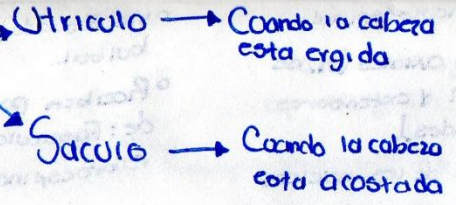 Utriculo → Cuando la cabeza
esta ergida
Saculo → Cuando la cabeza
esta acostada